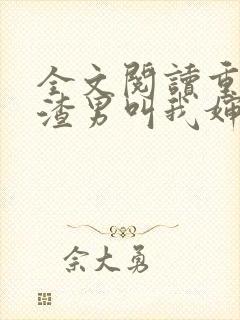 全文閱讀重
渣男叫我嬸
佘大勇